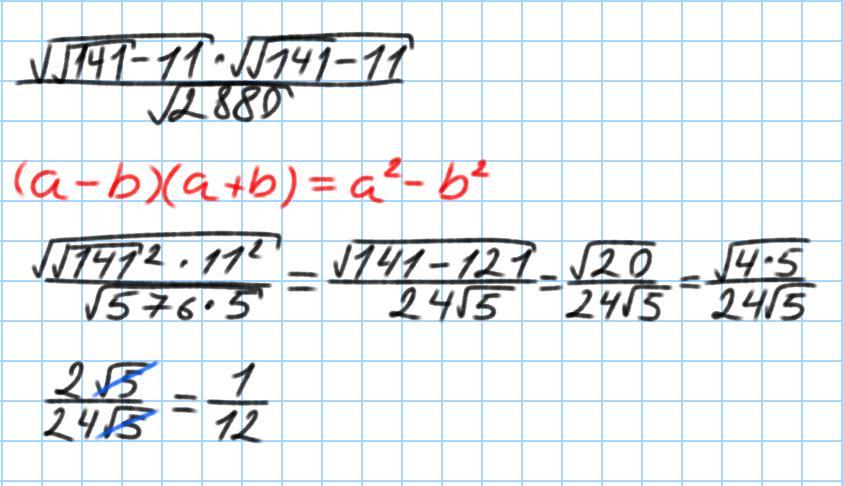 √(√141 - 11) · √(√141 - 11) / √2880
(a - b)(a + b) = a² - b²
√(√141² · 11²) / √(576 · 5) = √(141 - 121) / 24√5 = √20 / 24√5 = √(4·5) / 24√5
2√5 / 24√5 = 1 / 12